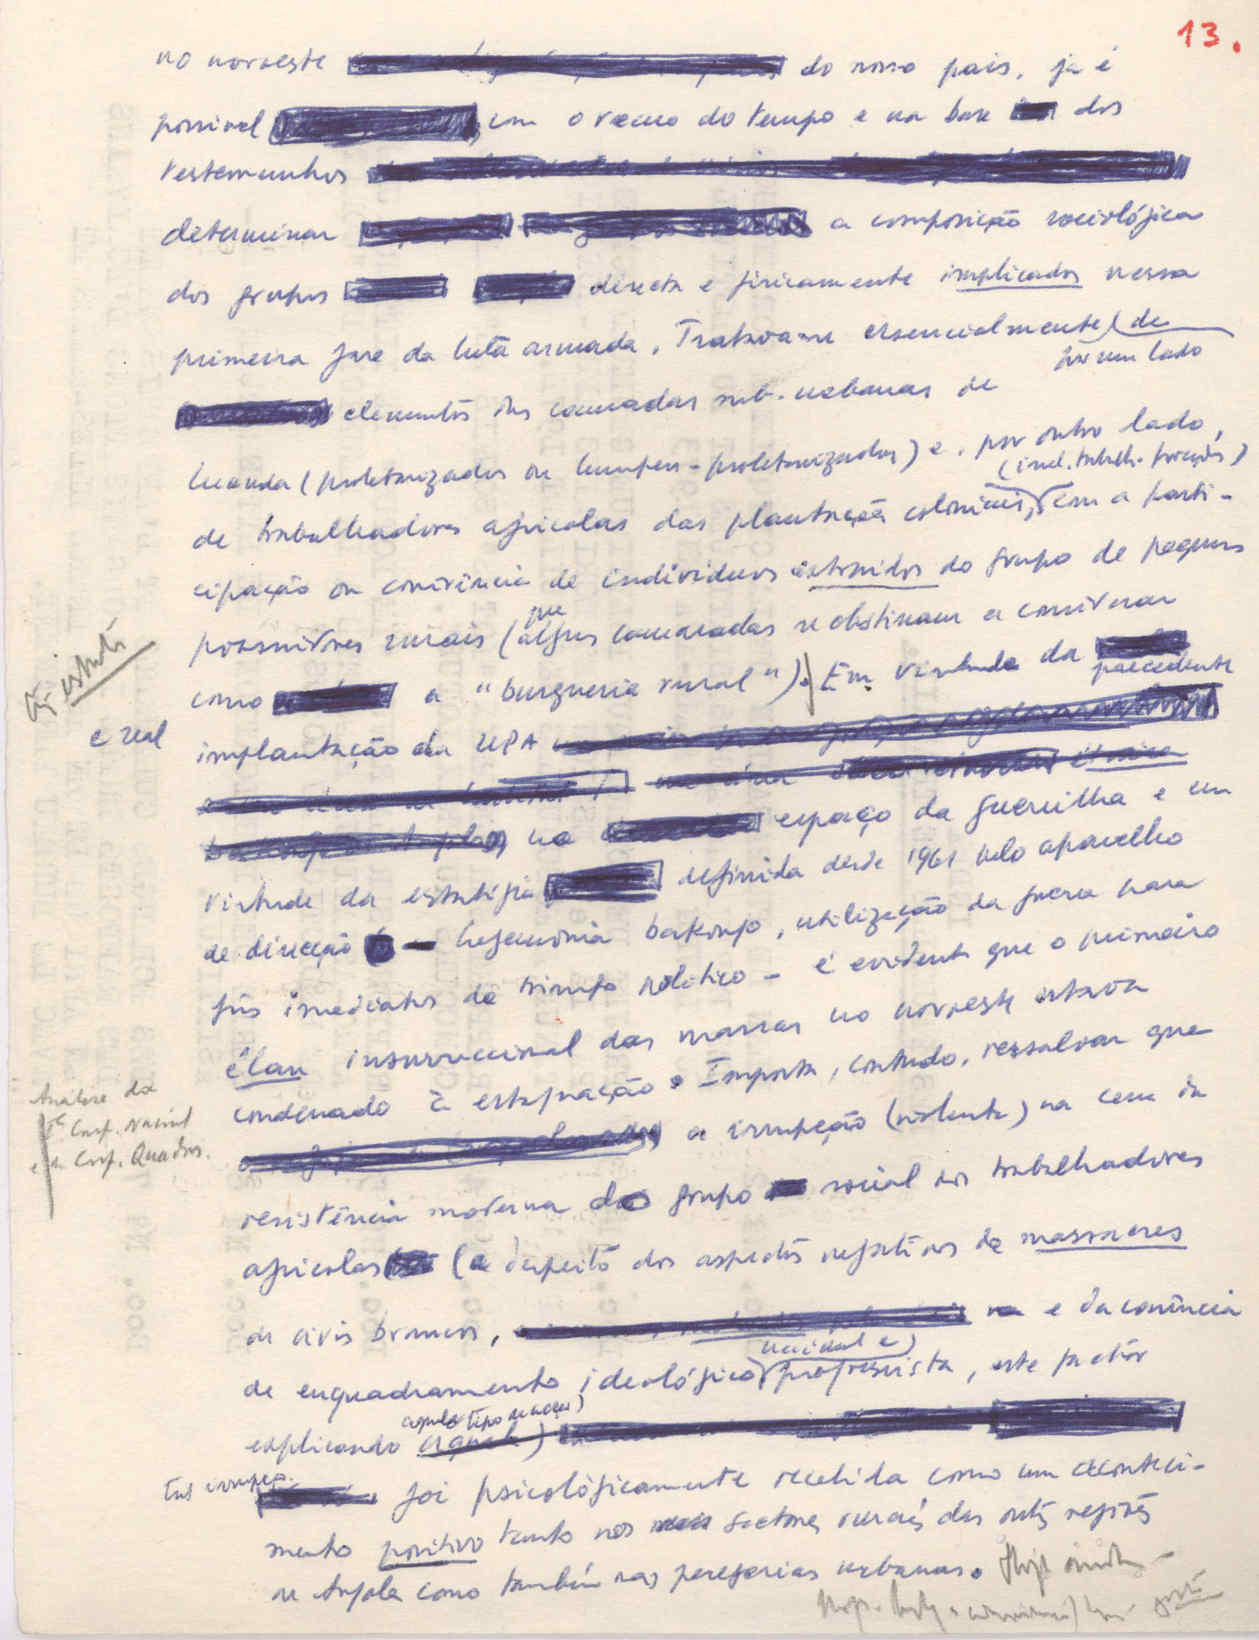 13.
no noroeste do nosso país, já é
possível com o recuo do tempo e na base dos
testemunhos
determinar a composição sociológica
dos grupos directa e fisicamente implicados nessa
primeira fase da luta armada. Tratava-se essencialmente, de
por um lado
elementos das camadas sub-urbanas de
Luanda (proletarizados ou lumpen-proletarizados) e, por outro lado,
(incl. trabalh. forçados)
de trabalhadores agrícolas das plantações coloniais, com a parti-
cipação ou conivência de indivíduos extraídos do grupo de pequenos
que
possuidores rurais (alguns camaradas se obstinam a considerar
como a "burguesia rural"). Em virtude da
precedente
e real
implantação da UPA
no espaço da guerrilha e em
virtude da estratégia definida desde 1961 pelo aparelho
de direcção - hegemonia bakongo, utilização da guerra para
fins imediatos de triunfo político - é evidente que o primeiro
élan insurreccional das massas no noroeste estava
condenado à estagnação. Importa, contudo, ressalvar que
Análise da
1ª Conf. Nacional
e da Conf. Quadros.
a irrupção (violenta) na cena da
resistência moderna do grupo social dos trabalhadores
agrícolas (a despeito dos aspectos negativos de massacres
de civis brancos, e da carência
de enquadramento ideológico progressista, este factor
explicando
aquele tipo de acções)
foi psicologicamente recebida como um aconteci-
mento positivo tanto nos sectores rurais das outras regiões
de Angola como também nas periferias urbanas.